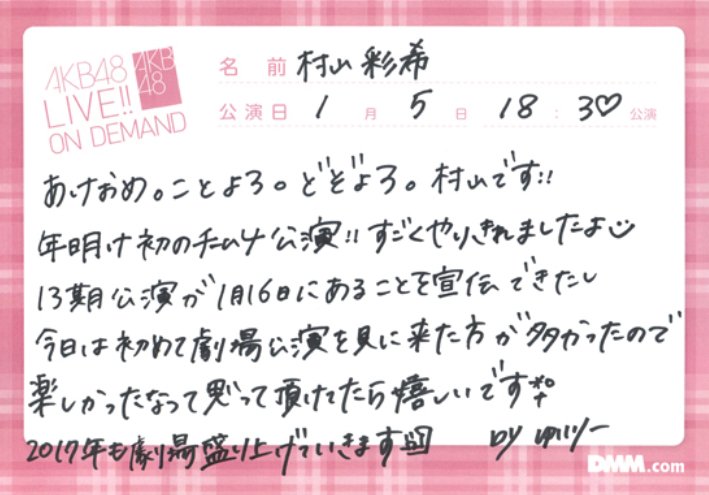 AKB48
LIVE!!
ON DEMAND
AKB
48
名前 村山彩希
公演日 1月 5日 18:30公演
あけおめ。ことよろ。どぞよろ。村山です!!
年明け初のチーム4公演!!すごくやりきれましたよ
13期公演が1月16日にあることを宣伝できたし
今日は初めて劇場公演を見に来た方が多かったので
楽しかったなって思って頂けてたら嬉しいです
2017年も劇場盛り上げていきます
by ゆいりー
DMM.com